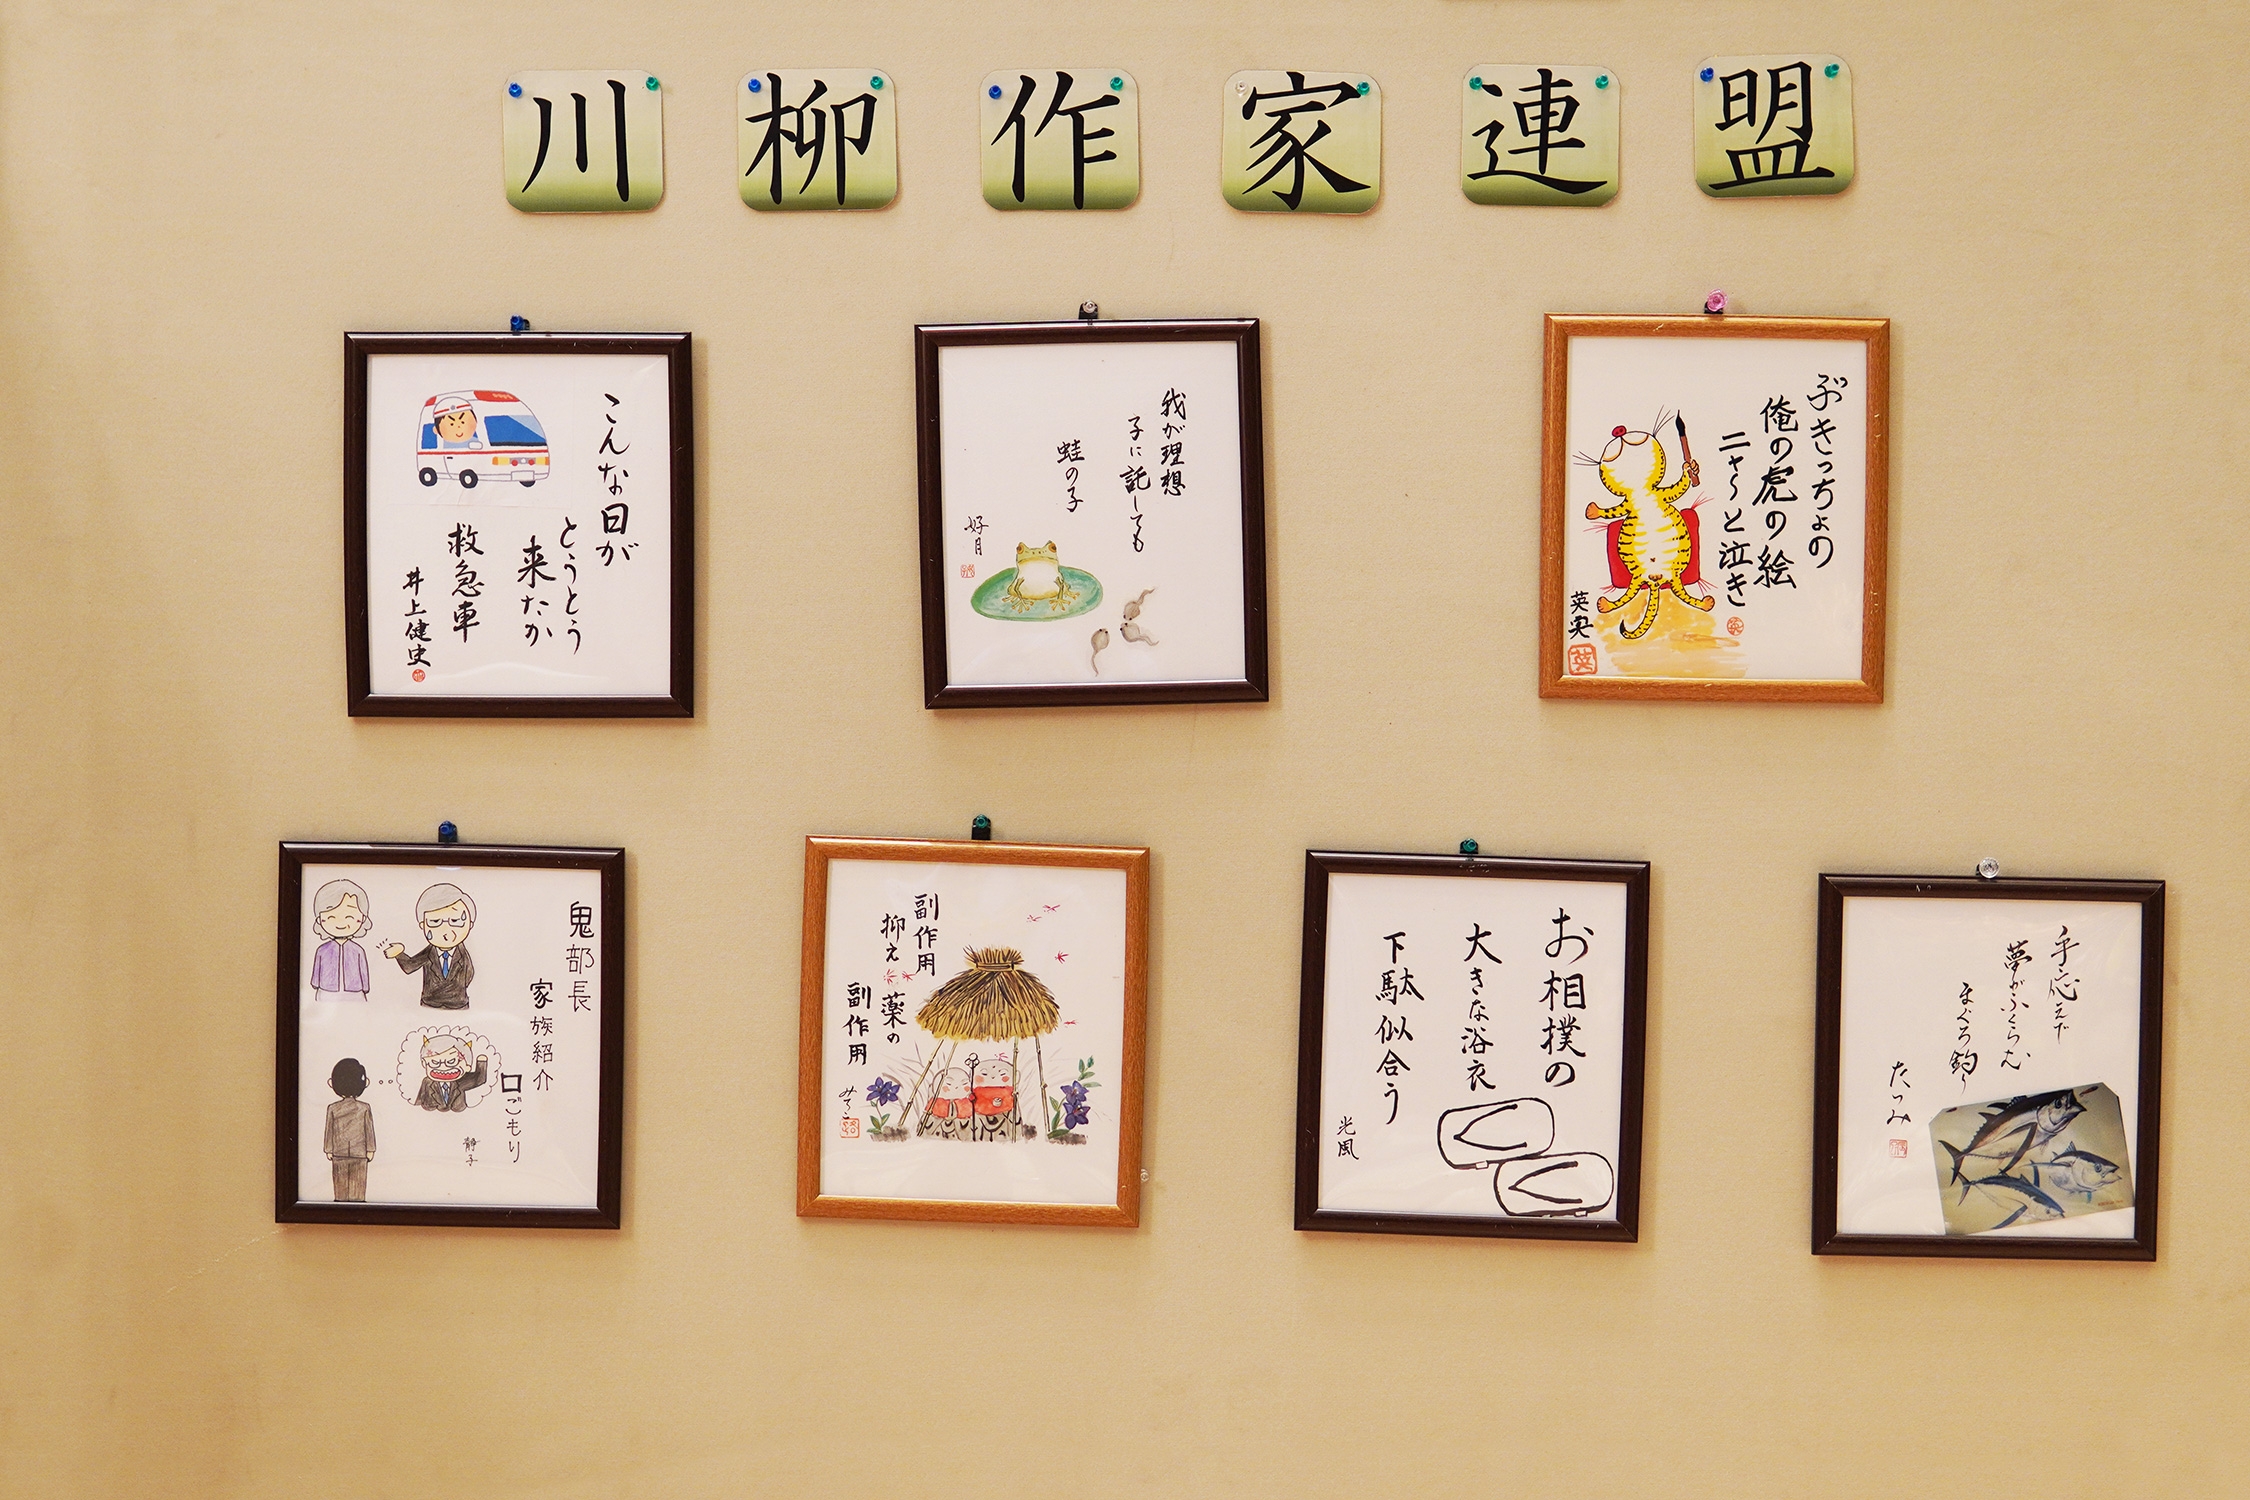 川柳作家連盟
こんな日が
とうとう
来たか
救急車
井上健史
我が理想
子に託しても
蛙の子
好月
ぶきっちょの
俺の虎の絵
ニャ〜と泣き
英実
英
鬼部長
家族紹介
口ごもり
静子
副作用
抑え薬の
副作用
お相撲の
大きな浴衣
下駄似合う
光風
手応えで
夢がふくらむ
まぐろ釣り
たつみ